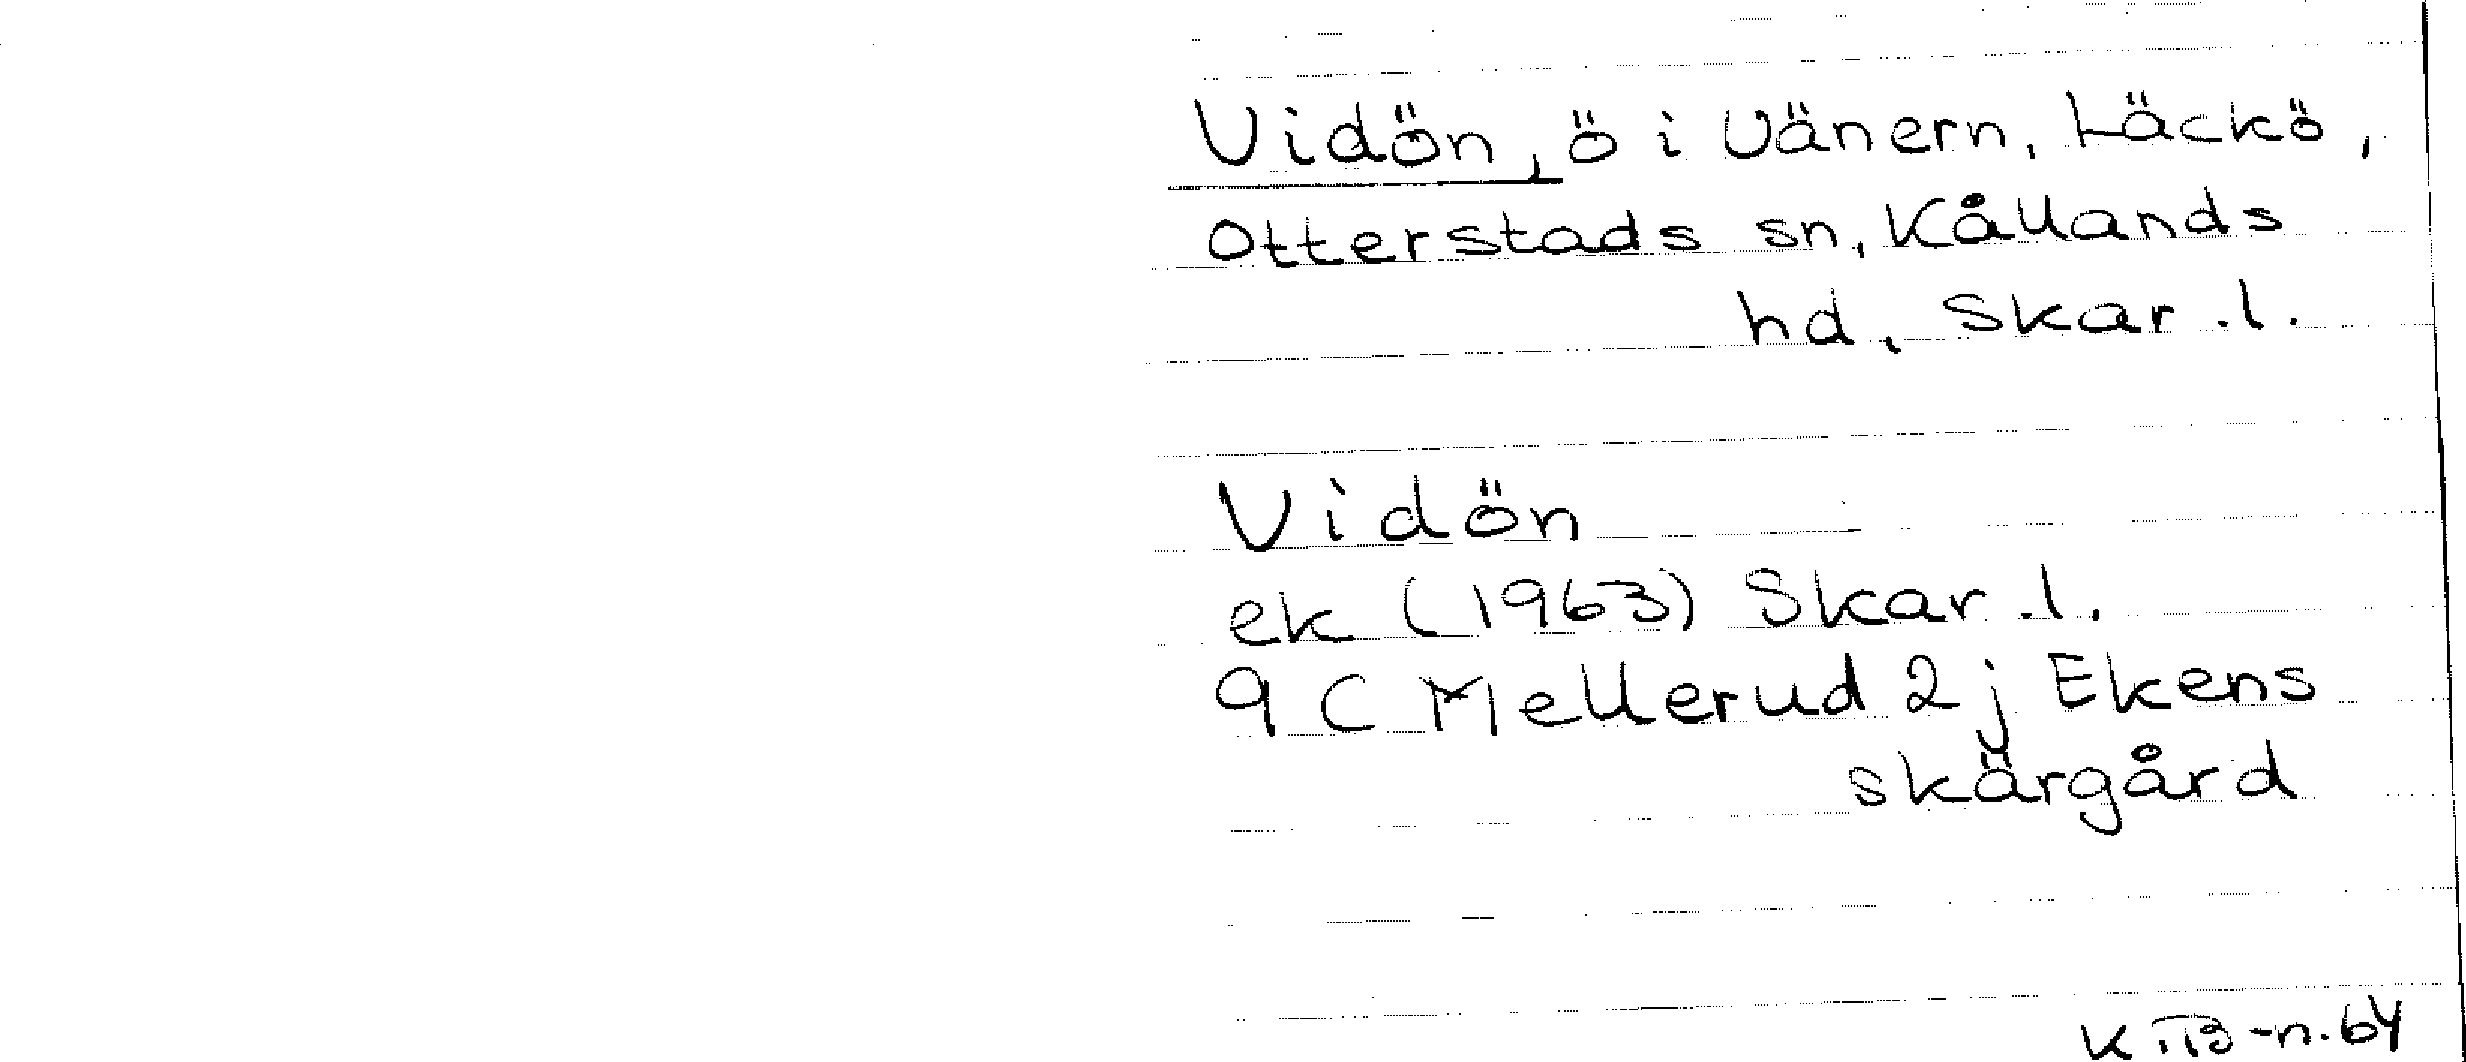 Vidön, ö i Vänern, Läckö,
Otterstads sn, Kållands
hd, Skar.l.
Vidön
ek (1963) Skar.l.
9 C Mellerud 2 j Ekens
skärgård
K.TB-n.64